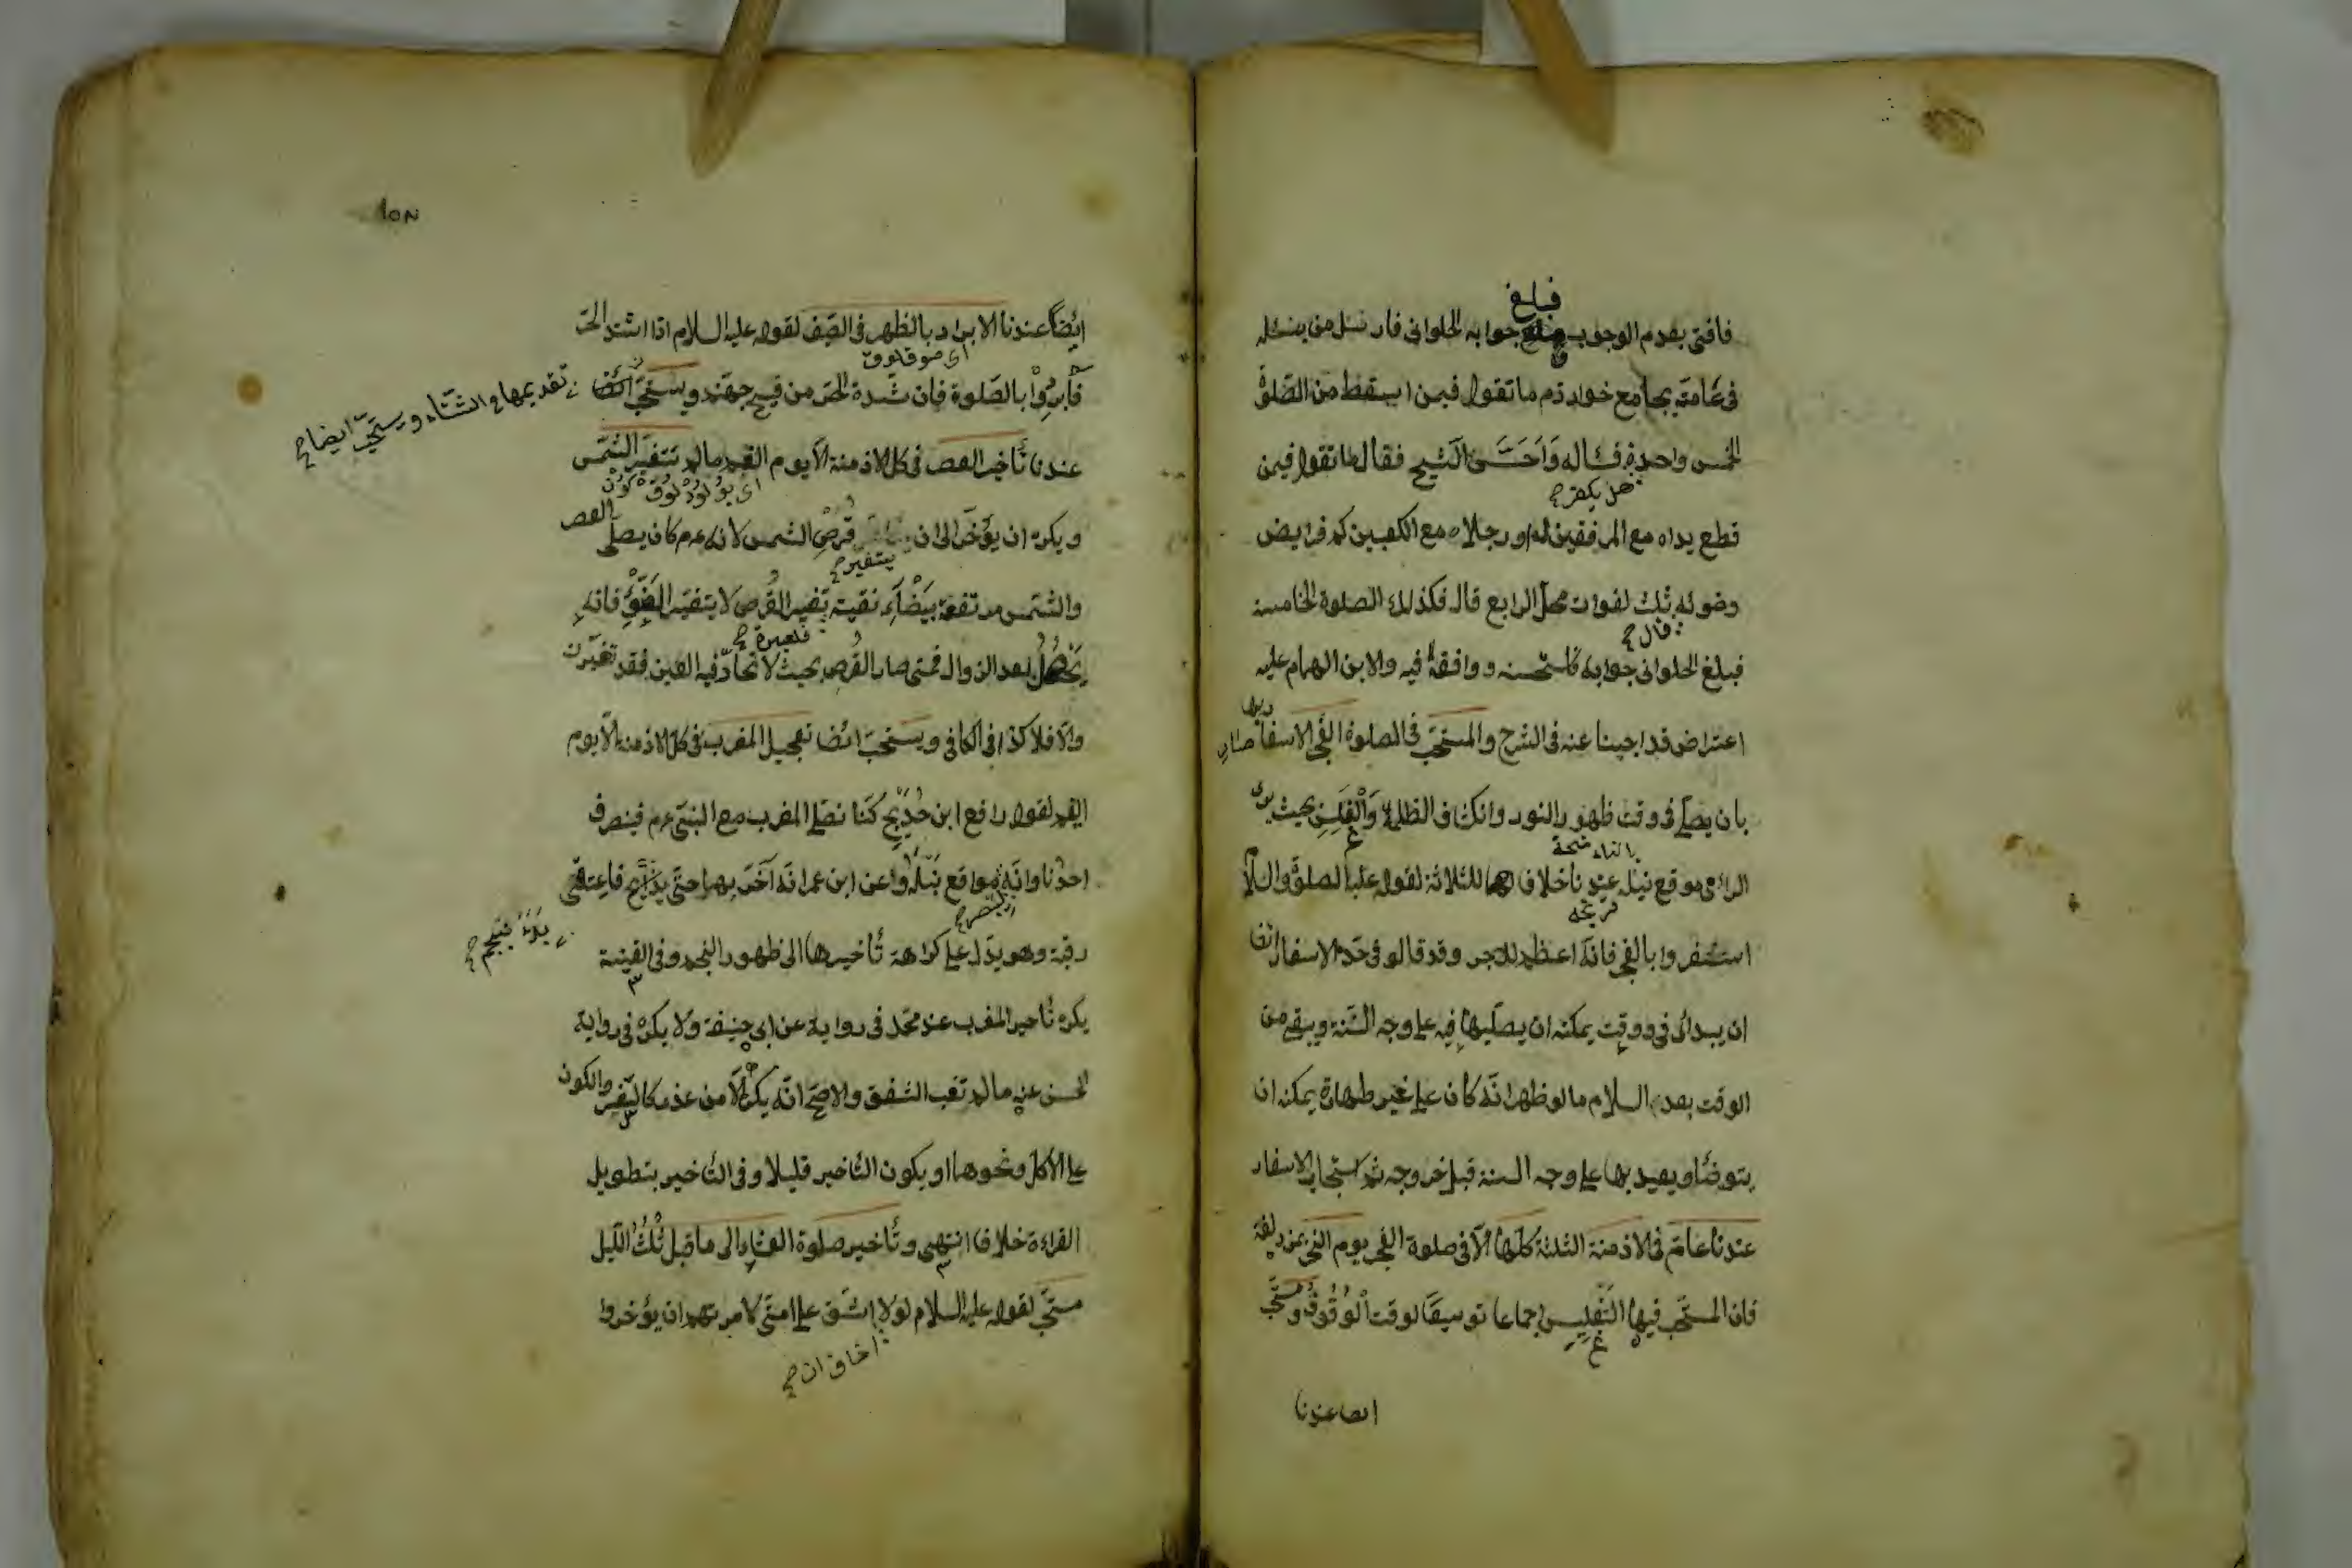 فبلغ
فافتى بعدم الوجوب جوابه الحلواني فارسل من يسئله
في عامته بجامع خوارزم ما تقول فيمن اسقط من الصلوة
الخمس واحدة فساله واحسّ الشيخ فقال ما تقول فيمن
هل يكفر صح
قطع يداه مع المرفقين او رجلاه مع الكعبين كم فرايض
وضوئه ثلث لفوات محل الرابع قال فكذلك الصلوة الخامسة
قال صح
فبلغ الحلواني جوابه فاستحسنه ووافقه فيه ولابن الهمام عليه
اعتراض قد اجبنا عنه في الشرح والمستحب في الصلوة الفجر الاسفار
بان يصلّي في وقت ظهور النور وانكشاف الظلمة والغلس بحيث يرى
الرامي موقع نبله عندنا خلافا للثلاثة لقوله عليه الصلوة والسلام
استفروا بالفجر فانه اعظم للاجر وقد قالو في حد الاسفار
ان يبدائ في وقت يمكنه ان يصليها فيه على وجه السّنة ويبقى من
الوقت بعد السلام ما لو ظهر انّه كان على غير طهارة يمكنه ان
يتوضّأ ويعيد بها على وجه السنة قبل خروجه ثم استحباب الاسفار
عندنا عامّ في الازمنة الثلثة كلّها الّا في صلوة الفجر يوم النحر
فان المستحب فيها التغليس اجماعا توسيعًا لوقت الوقوف ومستحب
ايضا عندنا
ايضًا عندنا الابراد بالظهر في الصّيف لقوله عليه السلام اذا اشتد الحر
فابردوا بالصلوة فان شدة الحر من فيح جهنم ويستحب
تقديمها في الشتاء ويستحبّ ايضا صح
عندنا تأخير العصر في كل الازمنة الّا يوم الغيم ما لم تتغير الشمس
ويكره ان يؤخّر الى ان قرص الشمس لانه عم كان يصلّي العصر
يتغير صح
والشّمس مرتفعة بيضآء نقية تغير القرص لا يتغير الضوء فانه
فلعبرة صح
يحصل بعد الزوال فمتى صار القرص بحيث لا تحار فيه العين فقد تغيّرت
والّا فلا كذا في الكافي ويستحبّ ايضا تعجيل المغرب في كل الازمنة الّا يوم
الغيم لقول رافع ابن خديج كنّا نصلّي المغرب مع النبيّ عم فينصرف
احدنا وانّه مواقع نبله وعن ابن عمر انّه آخّر بهما حتّى فاعتق
ليبصر صح
رقبة وهو يدّل على كراهة تأخيرها الى ظهور النجم وفي القنية
يكره تأخير المغرب عند محمّد في رواية عن ابي حنيفة ولا يكره في رواية
الحسن عنه ما لم تغب الشّفق والاصحّ انّه يكره الّا من عذر كالسّفر والكون
على الاكل ونحوهما او يكون التّأخير قليلا وفي التّأخير بتطويل
القراءة خلاف انتهى وتأخير صلوة العشاء الى ما قبل ثلث اللّيل
مستحبّ لقوله عليه السلام لولا اشّق على امتّي لامرتهم ان يؤخروا
اخاف ان صح